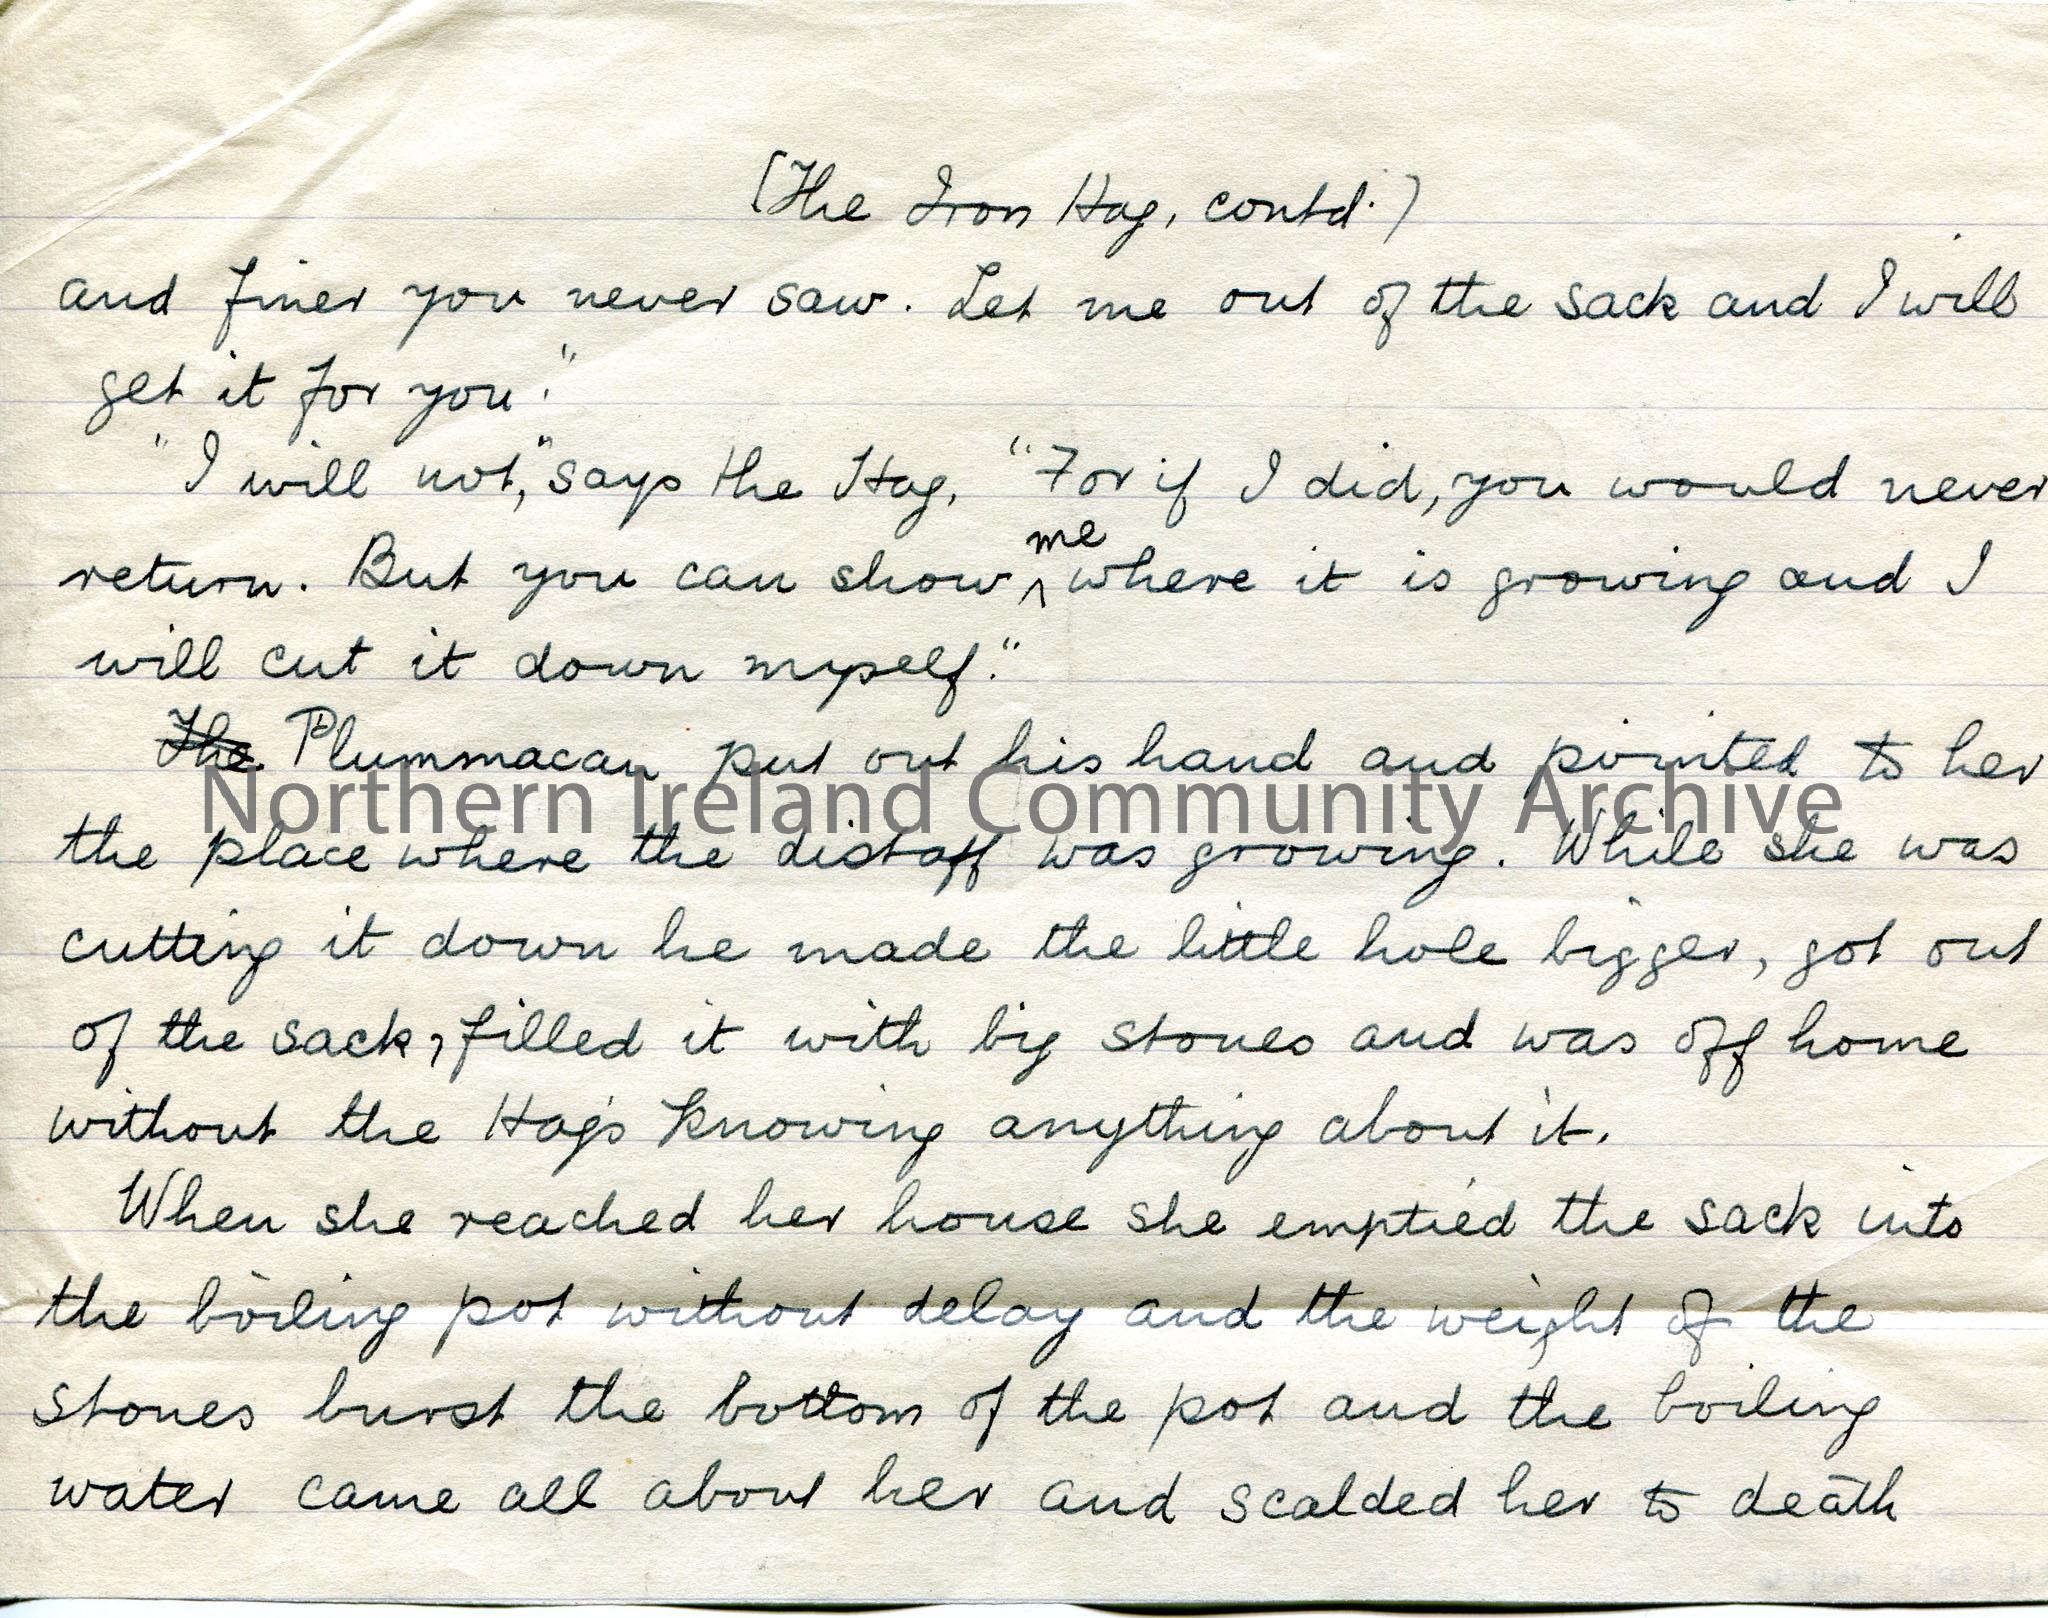 (The Iron Hag, contd.)
and finer you never saw. Let me out of the sack and I will
get it for you."
"I will not," says the Hag, "For if I did, you would never
me
return. But you can show ^ where it is growing and I
will cut it down myself."
The Plummacan put out his hand and pointed to her
Northern Ireland Community Archive
the place where the distaff was growing. While she was
cutting it down he made the little hole bigger, got out
of the sack, filled it with big stones and was off home
without the Hag's knowing anything about it.
When she reached her house she emptied the sack into
the boiling pot without delay and the weight of the
stones burst the bottom of the pot and the boiling
water came all about her and scalded her to death